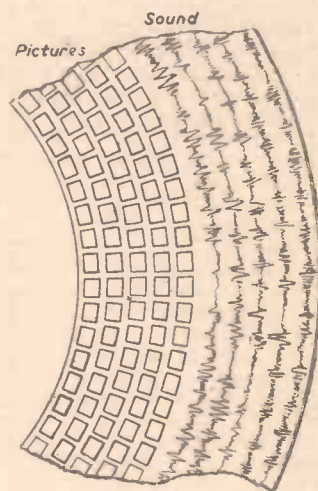 Sound
Pictures